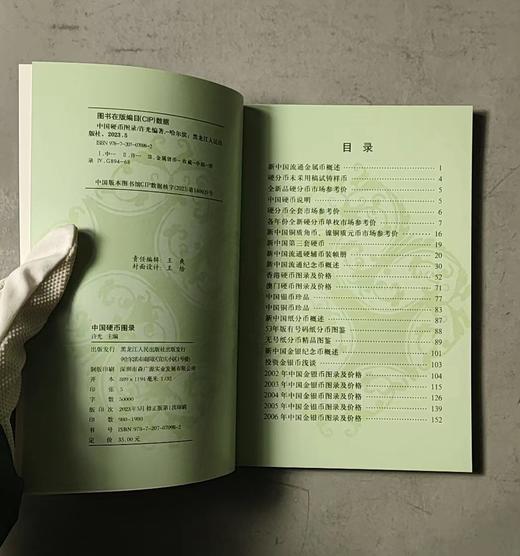 图书在版编目(CIP)数据
中国硬币图录/许光编著.-哈尔滨:黑龙江人民出
版社,2023.5
ISBN 978-7-207-07098-2
中国版本图书馆CIP数据核字
责任编辑: 王 爽
封面设计: 王 绘
中国硬币图录
许光 主编
出版发行 黑龙江人民出版社出版发行
制版印刷 深圳市森广源实业发展有限公司
开 本 889×1194毫米 1/32
印 张 5
字 数 50000
版 印 次 2023年5月修正版第1次印刷
印 数 900-1900
书 号 ISBN 978-7-207-07098-2
定 价 35.00元
目 录
新中国流通金属币概述 1
硬分币未采用稿试铸样币 4
全新品硬分币市场参考价 5
中国硬币说明 5
硬分币全套市场参考价 6
各年份全新硬分币单枚市场参考价 7
新中国铜质角币、镍铜质元币市场参考价 16
新中国第三套硬币
新中国流通硬辅币装帧册
新中国流通纪念币概述
香港硬币图录及价格
澳门硬币图录及价格
中国银币珍品
中国铜币珍品
新中国纸分币概述
53年版有号码纸分币图鉴
无号纸分币精品图鉴
新中国金银币纪念币概述
投资金银币浅谈
2002年中国金银币图录及价格
2003年中国金银币图录及价格 115
2004年中国金银币图录及价格 126
2005年中国金银币图录及价格 139
2006年中国金银币图录及价格 152